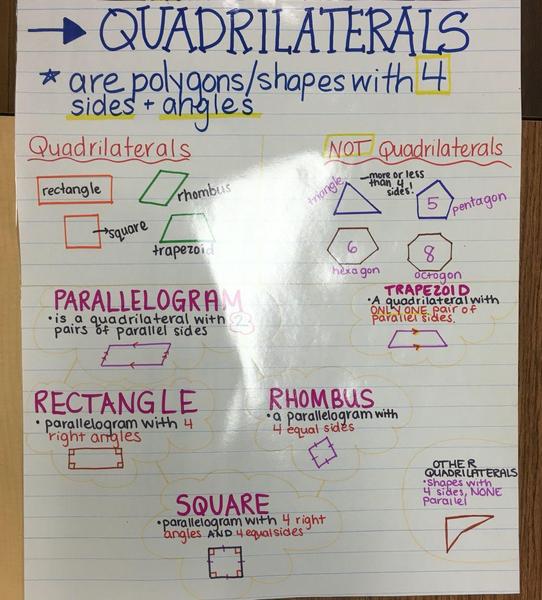 → QUADRILATERALS
* are polygons/shapes with 4
sides + angles
Quadrilaterals
rectangle
rhombus
→square
trapezoid
NOT Quadrilaterals
triangle
—more or less
than 4
sides!
5
pentagon
6
hexagon
8
octogon
PARALLELOGRAM
•is a quadrilateral with 2
pairs of parallel sides
TRAPEZOID
•A quadrilateral with
ONLY ONE pair of
parallel sides.
RECTANGLE
• parallelogram with 4
right angles
RHOMBUS
•a parallelogram with
4 equal sides
SQUARE
•parallelogram with 4 right
angles AND 4 equal sides
OTHER
QUADRILATERALS
•Shapes with
4 sides, NONE
parallel